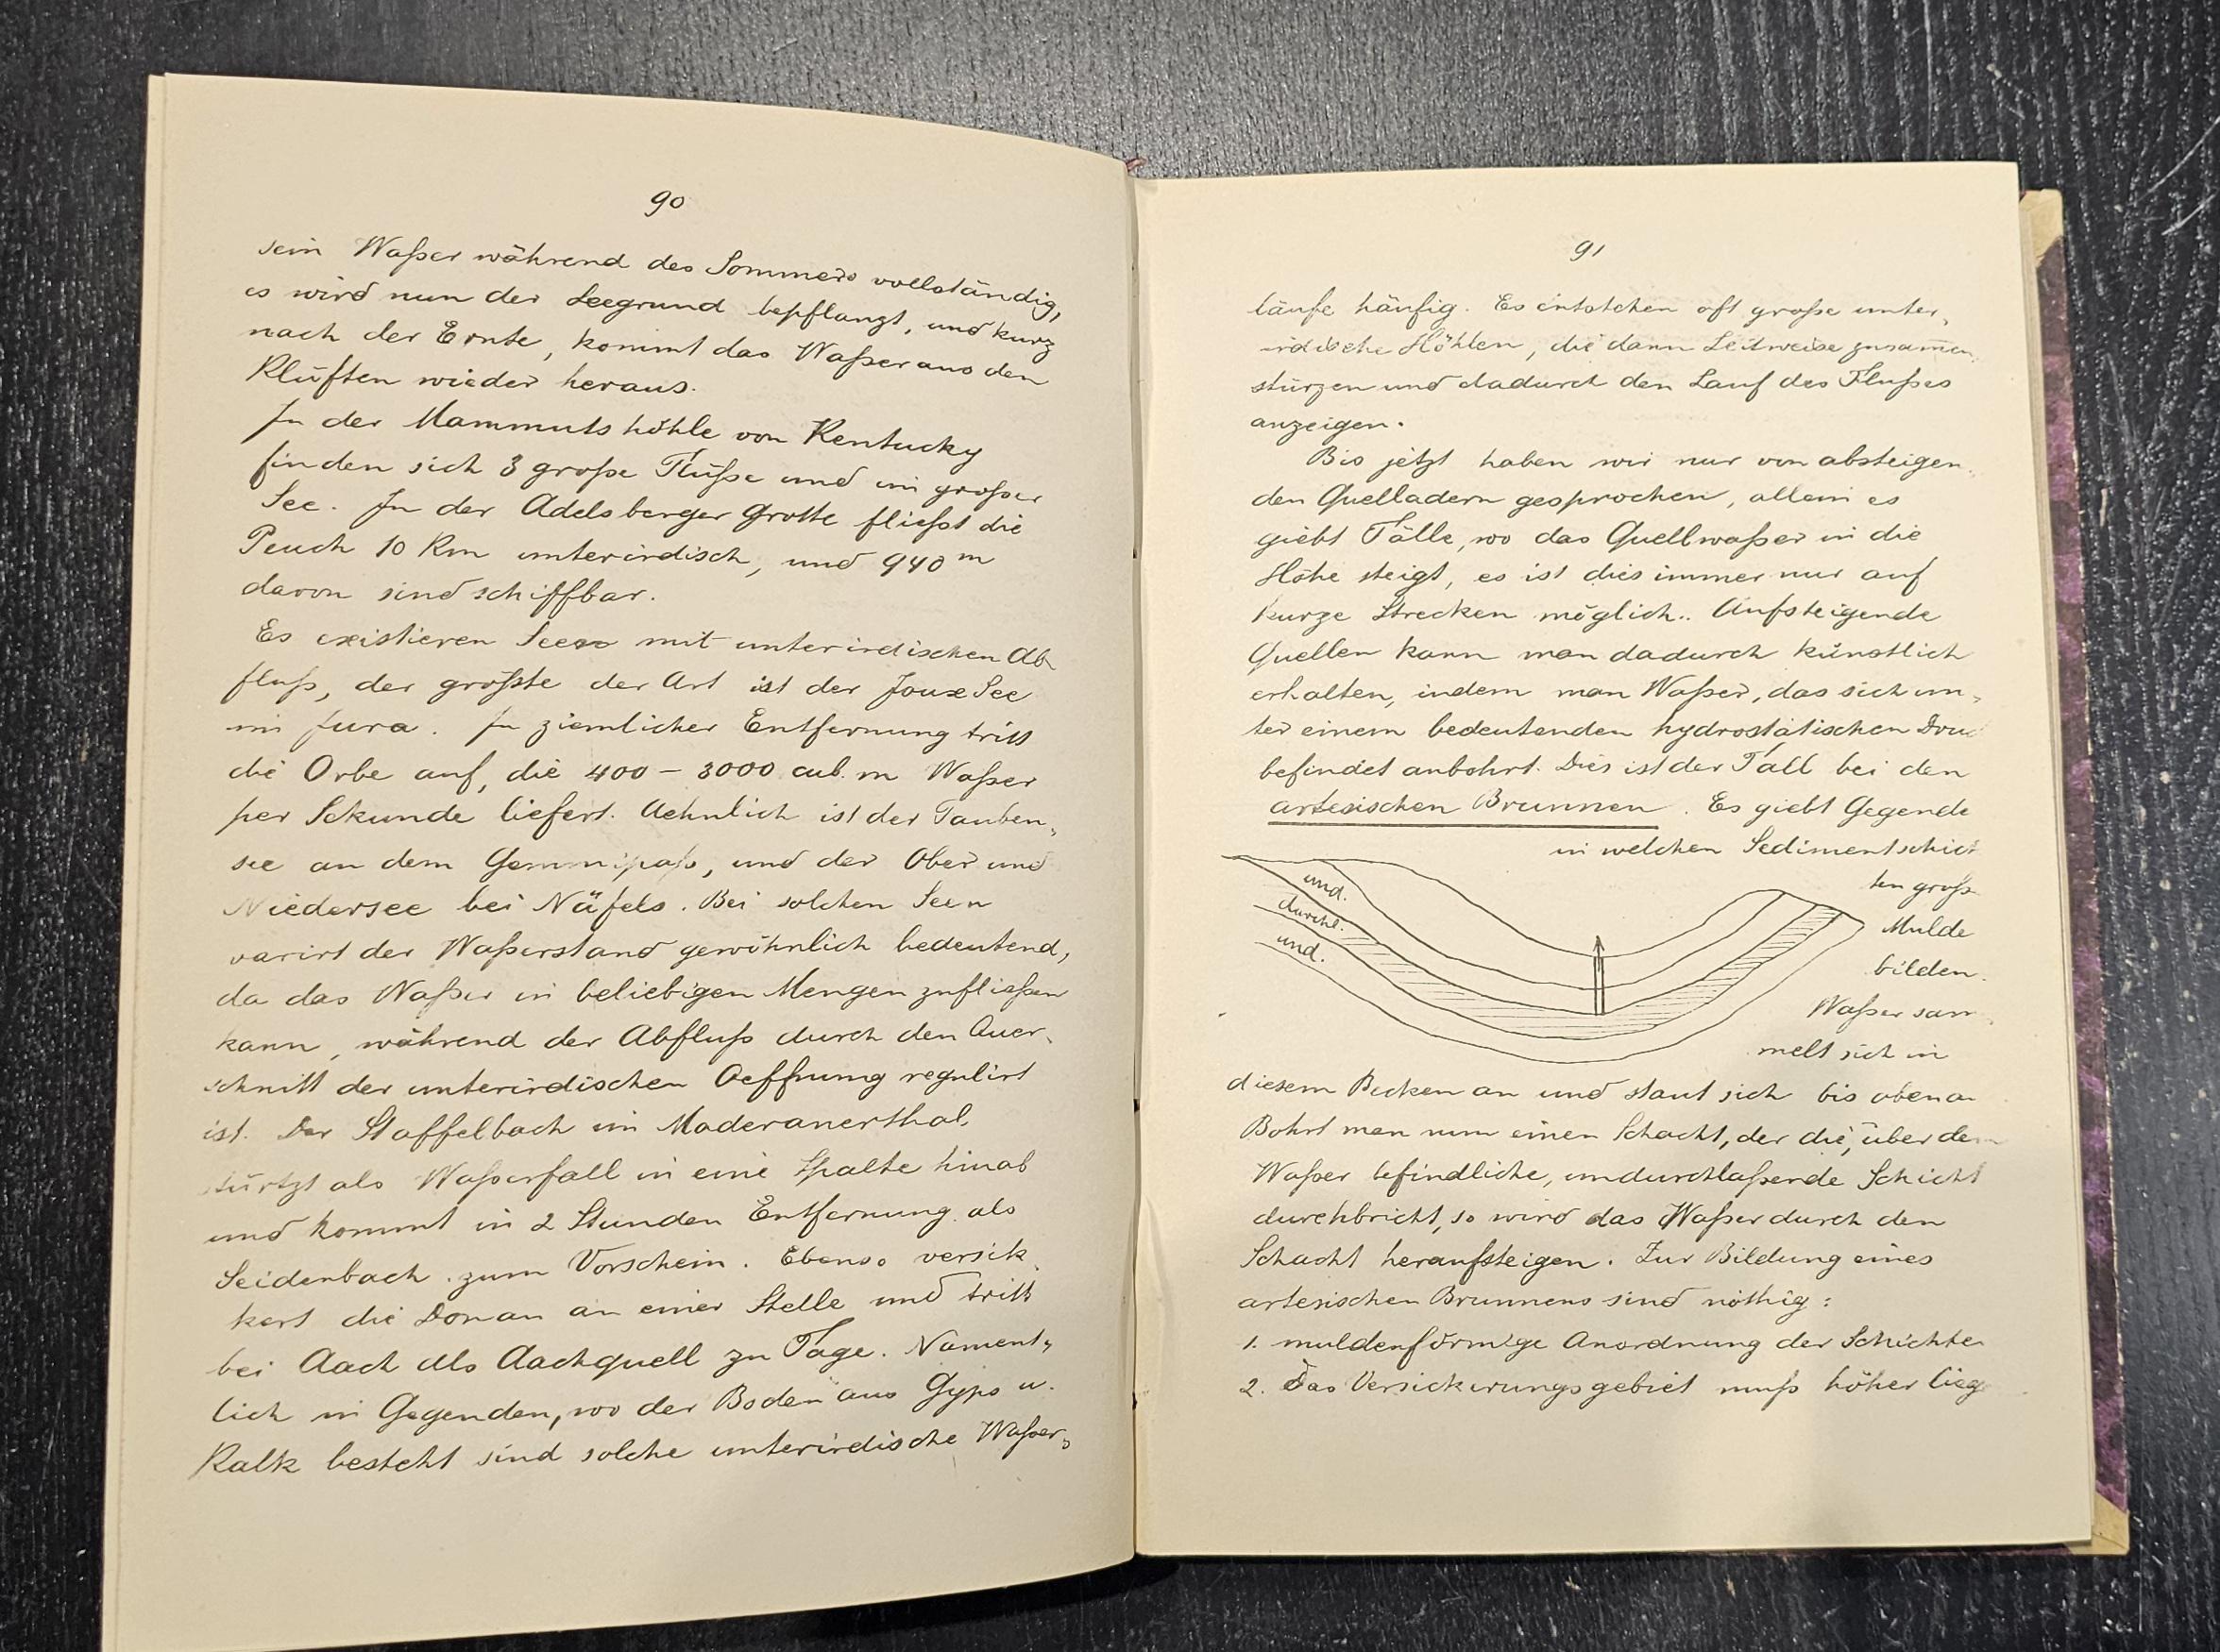 90
sein Waßer während des Sommers vollständig,
es wird nun der Seegrund bepflanzt, und kurz
nach der Ernte, kommt das Waßer aus den
Klüften wieder heraus.
In der Mammutshöhle von Kentucky
finden sich 3 große Flüße und ein großer
See. In der Adelsberger Grotte fließt die
Peuch 10 Km unterirdisch, und 940 m
davon sind schiffbar.
Es existieren Seen mit unterirdischen Ab-
fluß, der größte der Art ist der Joux See
im Jura. In ziemlicher Entfernung tritt
die Orbe auf, die 400 – 3000 cub. m Waßer
per Sekunde liefert. Aehnlich ist der Tauben-
see an dem Gemmipaß, und der Ober und
Niedersee bei Näfels. Bei solchen Seen
varirt der Waßerstand gewöhnlich bedeutend,
da das Waßer in beliebigen Mengen zufließen
kann, während der Abfluß durch den Quer-
schnitt der unterirdischen Oeffnung regulirt
ist. Der Staffelbach im Maderanerthal
stürtzt als Waßerfall in eine Spalte hinab
und kommt in 2 Stunden Entfernung als
Seidenbach zum Vorschein. Ebenso versik-
kert die Donau an einer Stelle und tritt
bei Aach als Aachquell zu Tage. Nament-
lich in Gegenden, wo der Boden aus Gyps u.
Kalk besteht sind solche unterirdische Waßer-
91
läufe häufig. Es entstehen oft große unter-
irdische Höhlen, die dann Zeitweise zusammen-
stürzen und dadurch den Lauf des Flußes
anzeigen.
Bis jetzt haben wir nur von absteigen-
den Quelladern gesprochen, allein es
giebt Fälle, wo das Quellwaßer in die
Höhe steigt, es ist dies immer nur auf
kurze Strecken möglich.. Aufsteigende
Quellen kann man dadurch künstlich
erhalten, indem man Waßer, das sich un-
ter einem bedeutenden hydrostatischen Druc
befindet anbohrt. Dies ist der Fall bei den
artesischen Brunnen. Es giebt Gegende
in welchen Sedimentschich
ten groß
Mulde
bilden.
Waßer sam
melt sich in
und.
durchl.
und.
diesem Becken an und staut sich bis oben an
Bohrt man nun einen Schacht, der die, über dem
Waßer befindliche, undurchlaßende Schicht
durchbricht, so wird das Waßer durch den
Schacht heraufsteigen. Zur Bildung eines
artesischen Brunnens sind nöthig:
1. muldenförmige Anordnung der Schichte
2. Das Versickerungsgebiet muß höher lieg